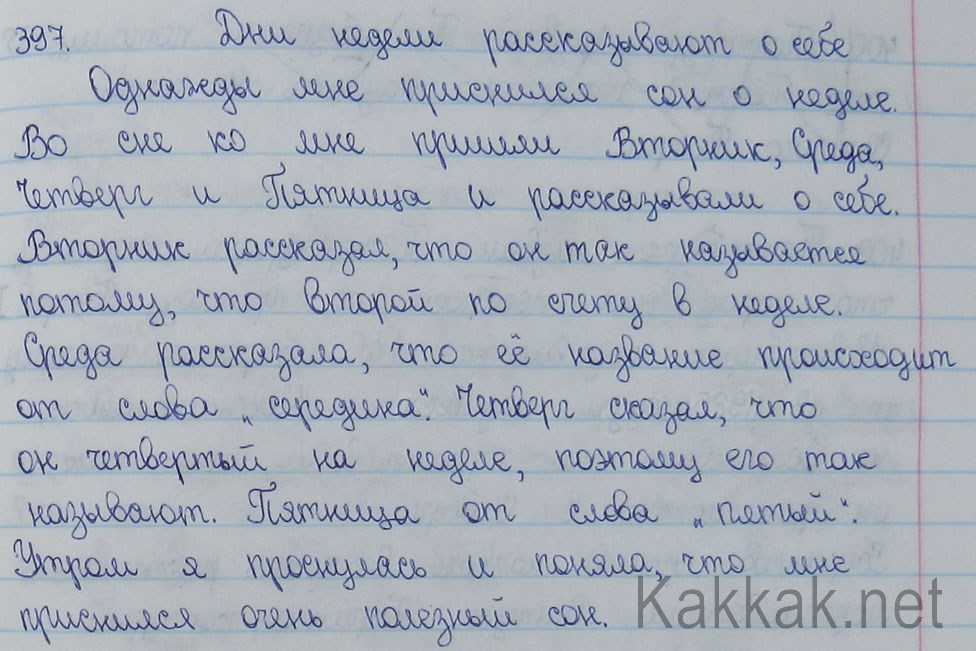 397. Дни недели рассказывают о себе
Однажды мне приснился сон о неделе.
Во сне ко мне пришли Вторник, Среда,
Четверг и Пятница и рассказывали о себе.
Вторник рассказал, что он так называется
потому, что второй по счету в неделе.
Среда рассказала, что её название происходит
от слова „середина". Четверг сказал, что
он четвертый на неделе, поэтому его так
называют. Пятница от слова „пятый".
Утром я проснулась и поняла, что мне
приснился очень полезный сон.
Kakkak.net